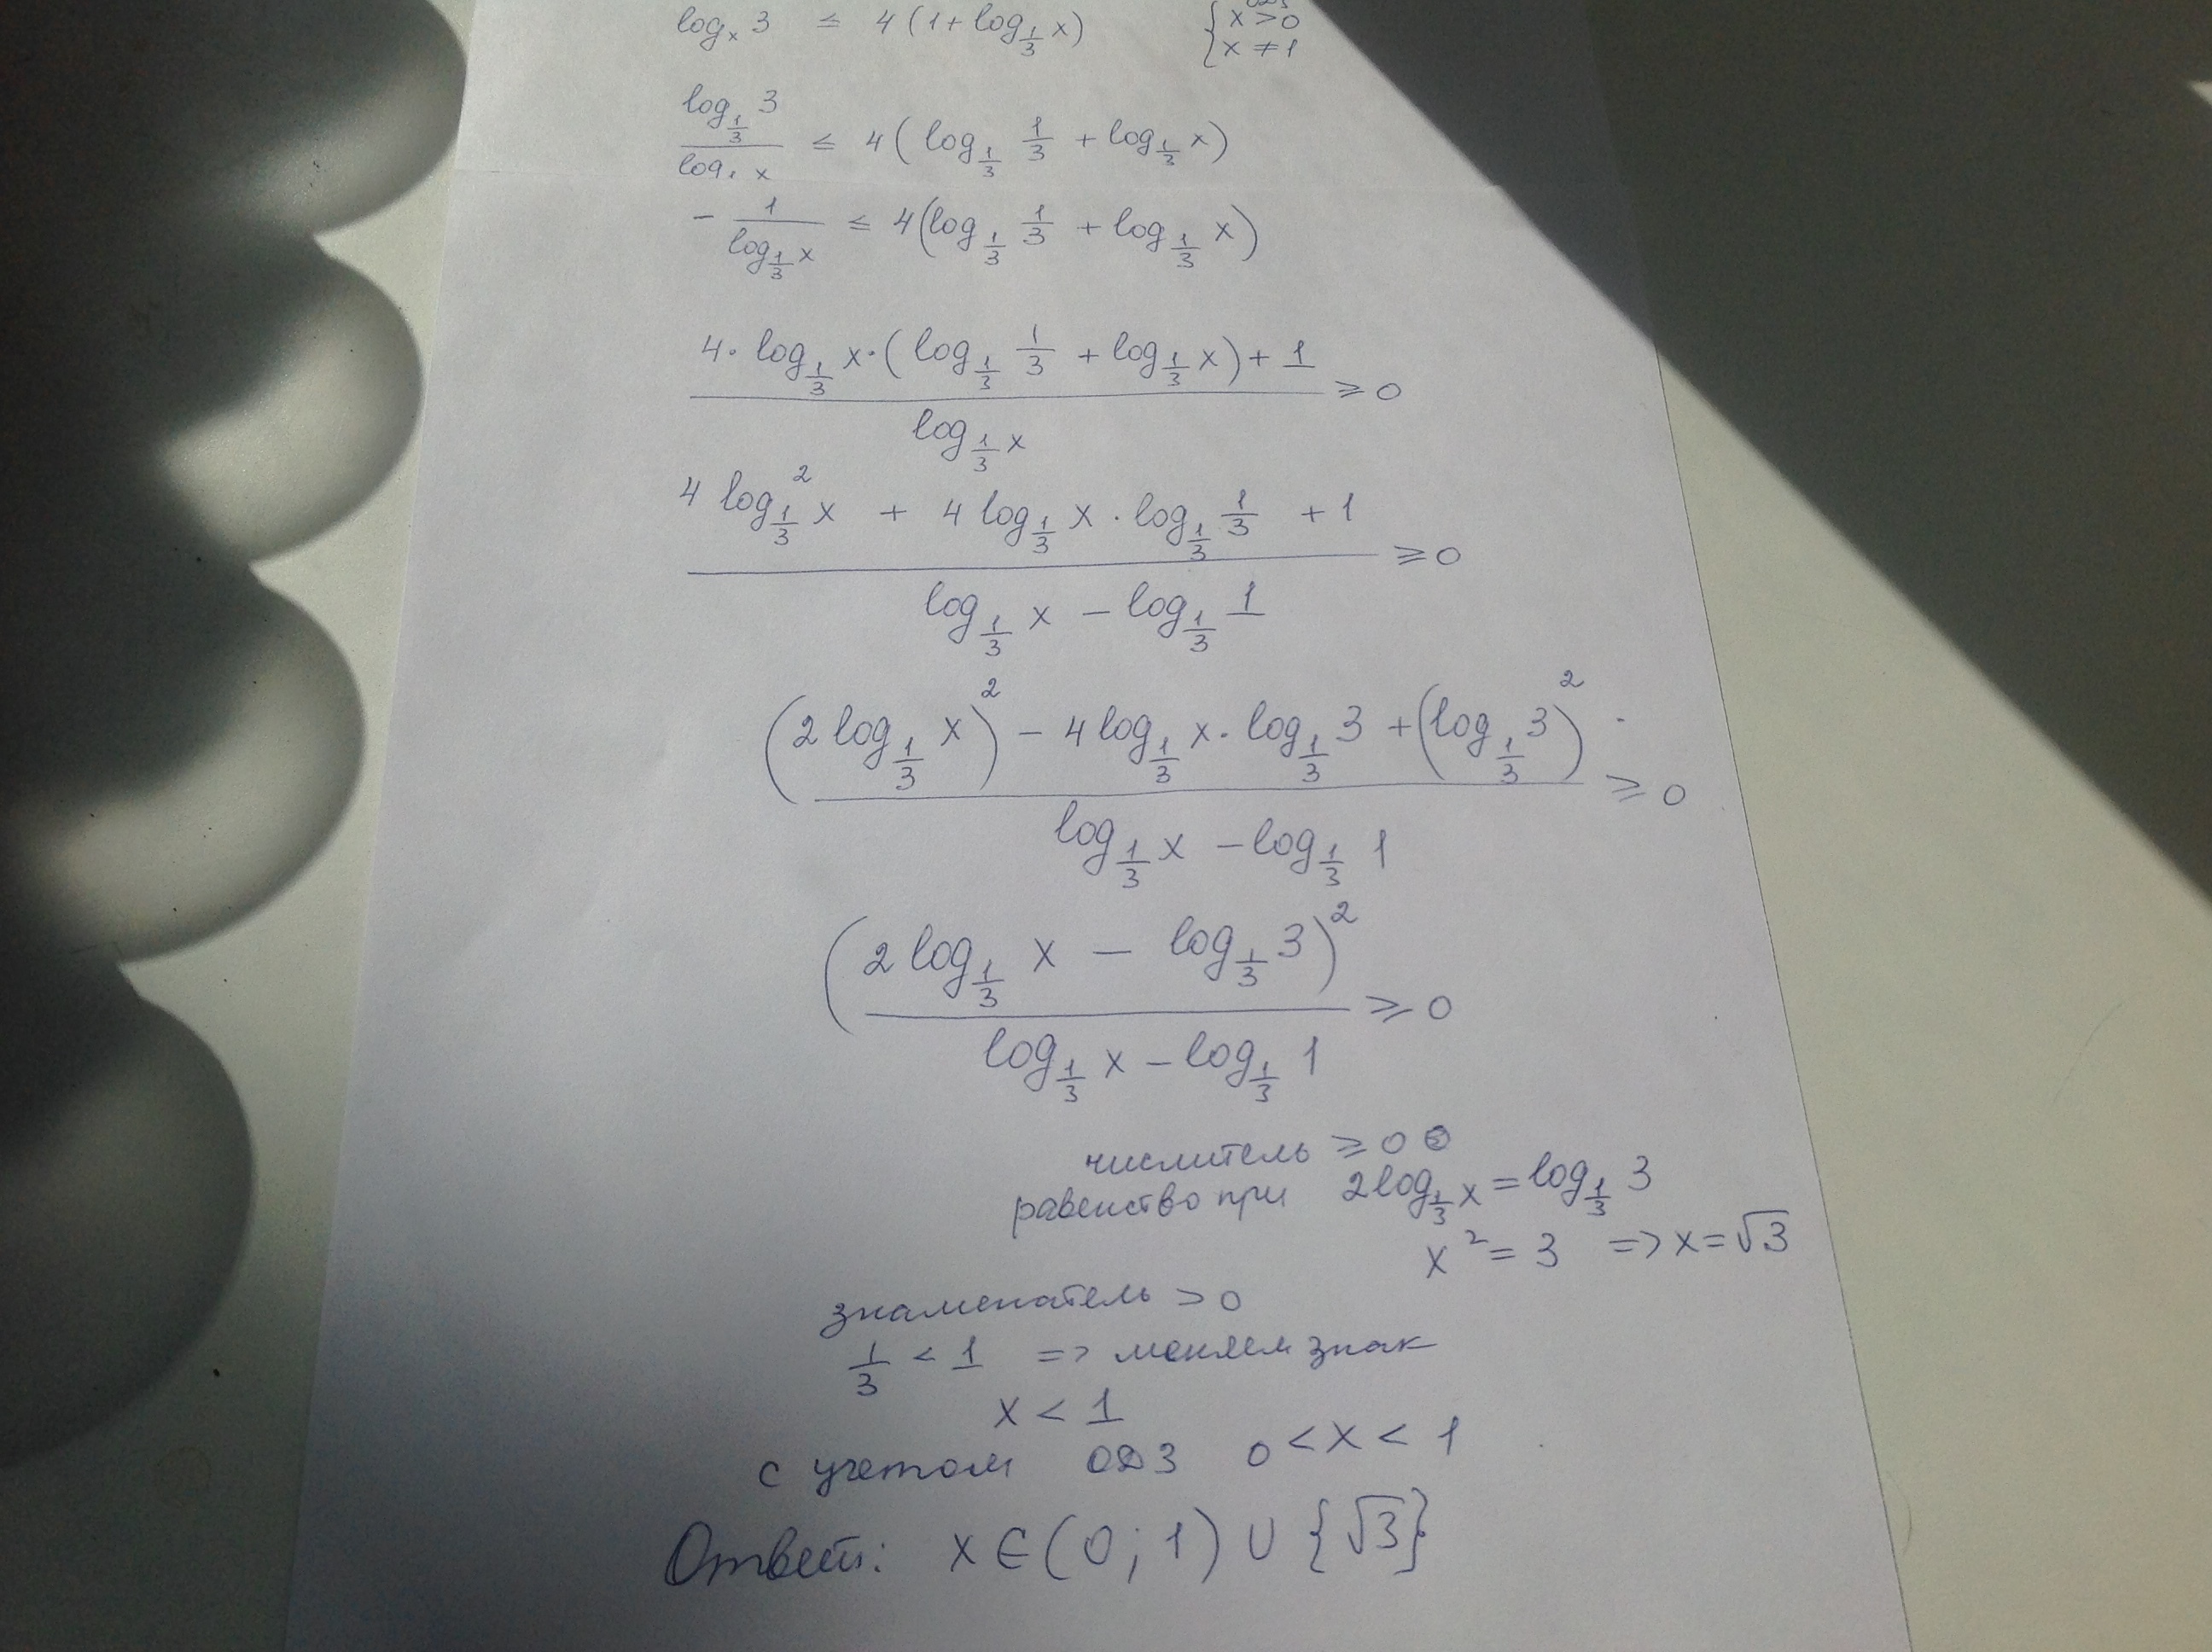 log_x 3 ≤ 4(1 + log_{1/3} x) { x > 0
x ≠ 1
log_{1/3} 3 / log_{1/3} x ≤ 4(log_{1/3} 1/3 + log_{1/3} x)
- 1 / log_{1/3} x ≤ 4(log_{1/3} 1/3 + log_{1/3} x)
4 · log_{1/3} x · (log_{1/3} 1/3 + log_{1/3} x) + 1
≥ 0
log_{1/3} x
4 log²_{1/3} x + 4 log_{1/3} x · log_{1/3} 1/3 + 1
≥ 0
log_{1/3} x - log_{1/3} 1
(2 log_{1/3} x)² - 4 log_{1/3} x · log_{1/3} 3 + (log_{1/3} 3)²
≥ 0
log_{1/3} x - log_{1/3} 1
(2 log_{1/3} x - log_{1/3} 3)²
≥ 0
log_{1/3} x - log_{1/3} 1
числитель ≥ 0
равенство при 2 log_{1/3} x = log_{1/3} 3
x² = 3 => x = √3
знаменатель > 0
1/3 < 1 => меняем знак
x < 1
с учетом ОДЗ 0 < x < 1
Ответ: x ∈ (0; 1) ∪ {√3}